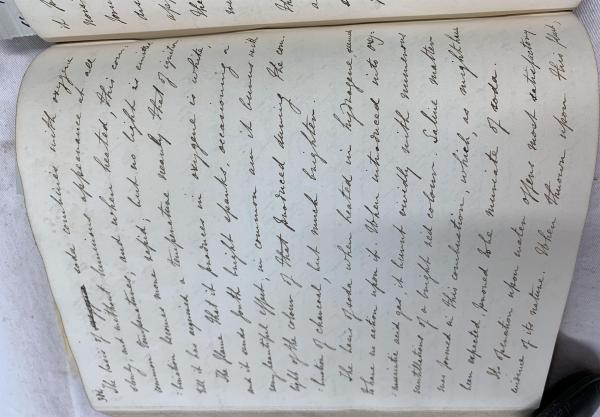 The basis of soda combines with oxygene
slowly and without luminous appearance at all
common temperatures; and when heated, this com-
bination becomes more rapid; but no light is emitted
till it has acquired a temperature nearly that of ignition
The flame that it produces in oxygene is white
and it sends forth bright sparks, occasioning a
very beautiful effect; in common air it burns with
light of the colour of that produced during the com-
bustion of charcoal, but much brighter.
The basis of soda when heated in hydrogene, seemed
to have no action upon it. When introduced into oxy-
muriatic acid gas, it burnt vividly with numerous
scintillations of a bright red colour. Saline matter
was formed in this combustion, which, as might have
been expected, proved to be muriate of soda.
Its operation upon water offers most satisfactory
evidence of its nature. When thrown upon this fluid,